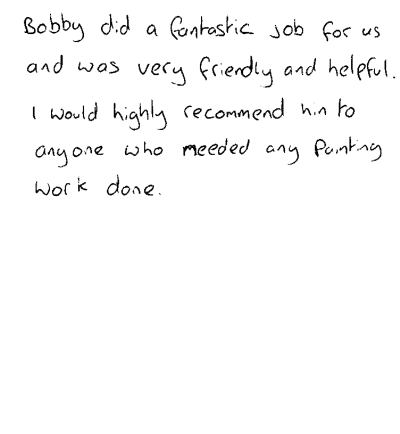 Bobby did a fantastic job for us
and was very friendly and helpful.
I would highly recommend him to
anyone who needed any Painting
work done.